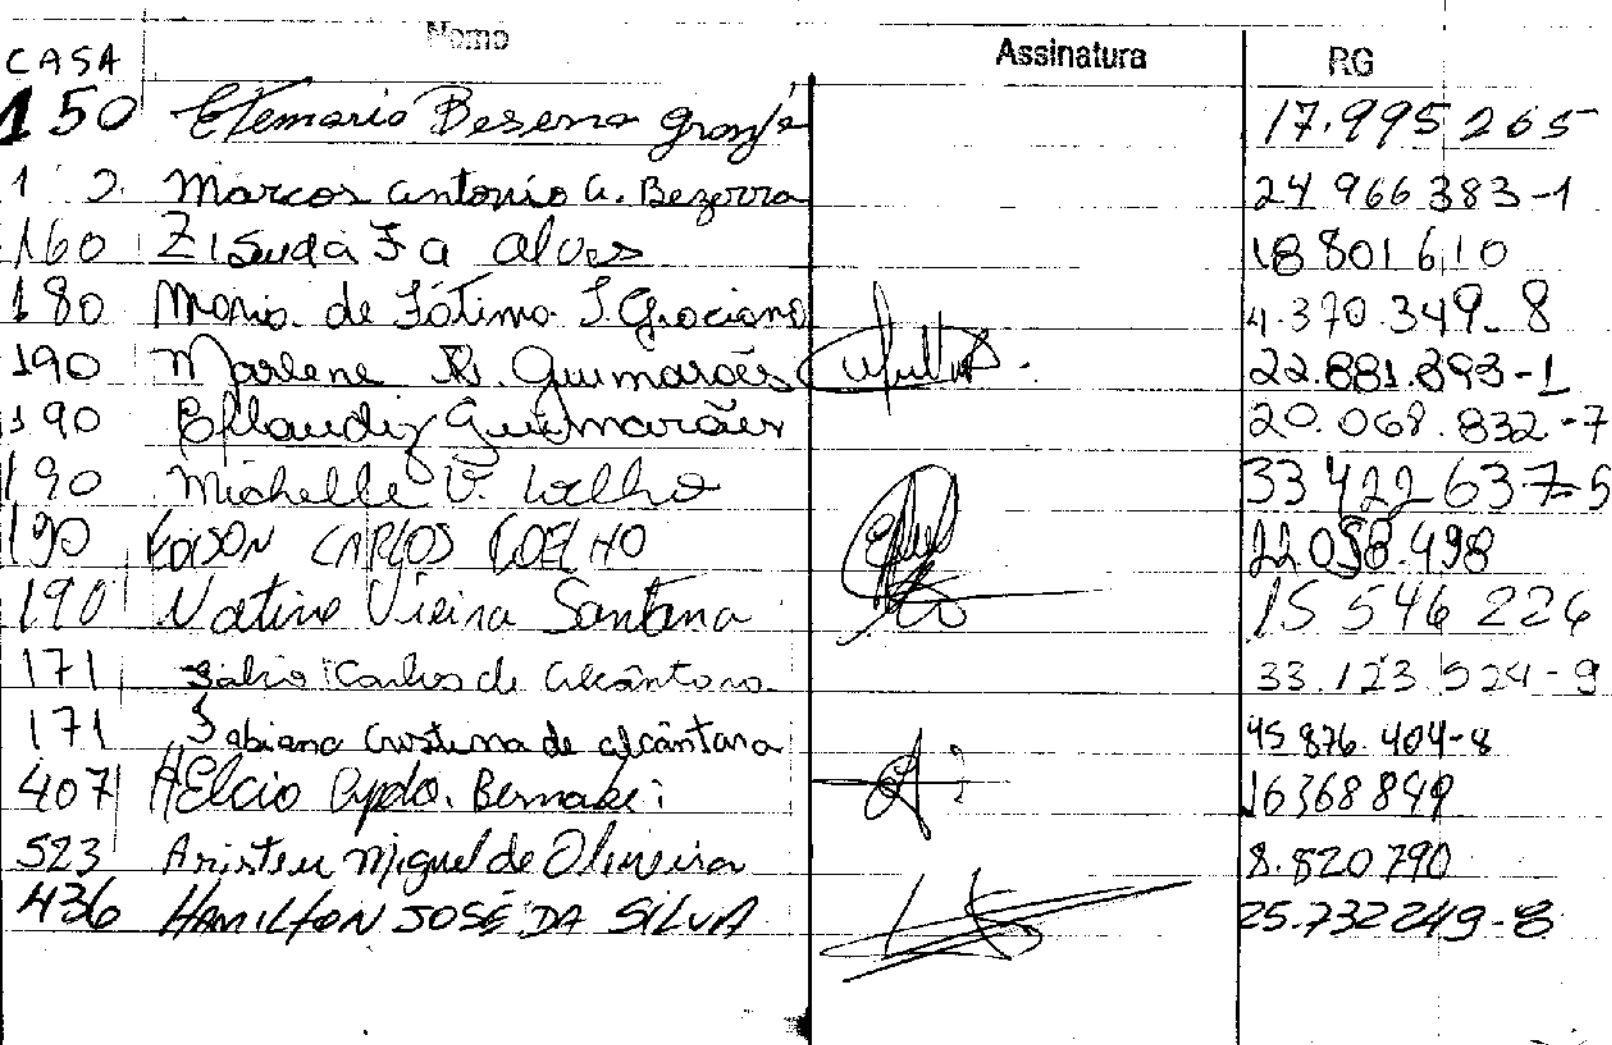 CASA Nome Assinatura RG
150 17.995265
Marcos Antonio A. Bezerra 24 966 383-1
160 Alves 18 801 610
180 Maria de Fátima S. Graciano 4.370.349-8
190 Marlene R. Guimarães 22.881.393-1
190 Guimarães 20.068.832-7
190 Michelle V. 33 422 637-5
190 EDISON CARLOS COELHO 498
190 Vieira Santana 15 546 226
171 Carlos de Alcântara 33.123.524-9
171 Fabiana Cristina de Alcântara 45 876.404-8
407 HElcio Apdo. Bernabei 16368849
523 Aristeu Miguel de Oliveira 8.520790
436 HAMILTON JOSÉ DA SILVA 25.732249-8